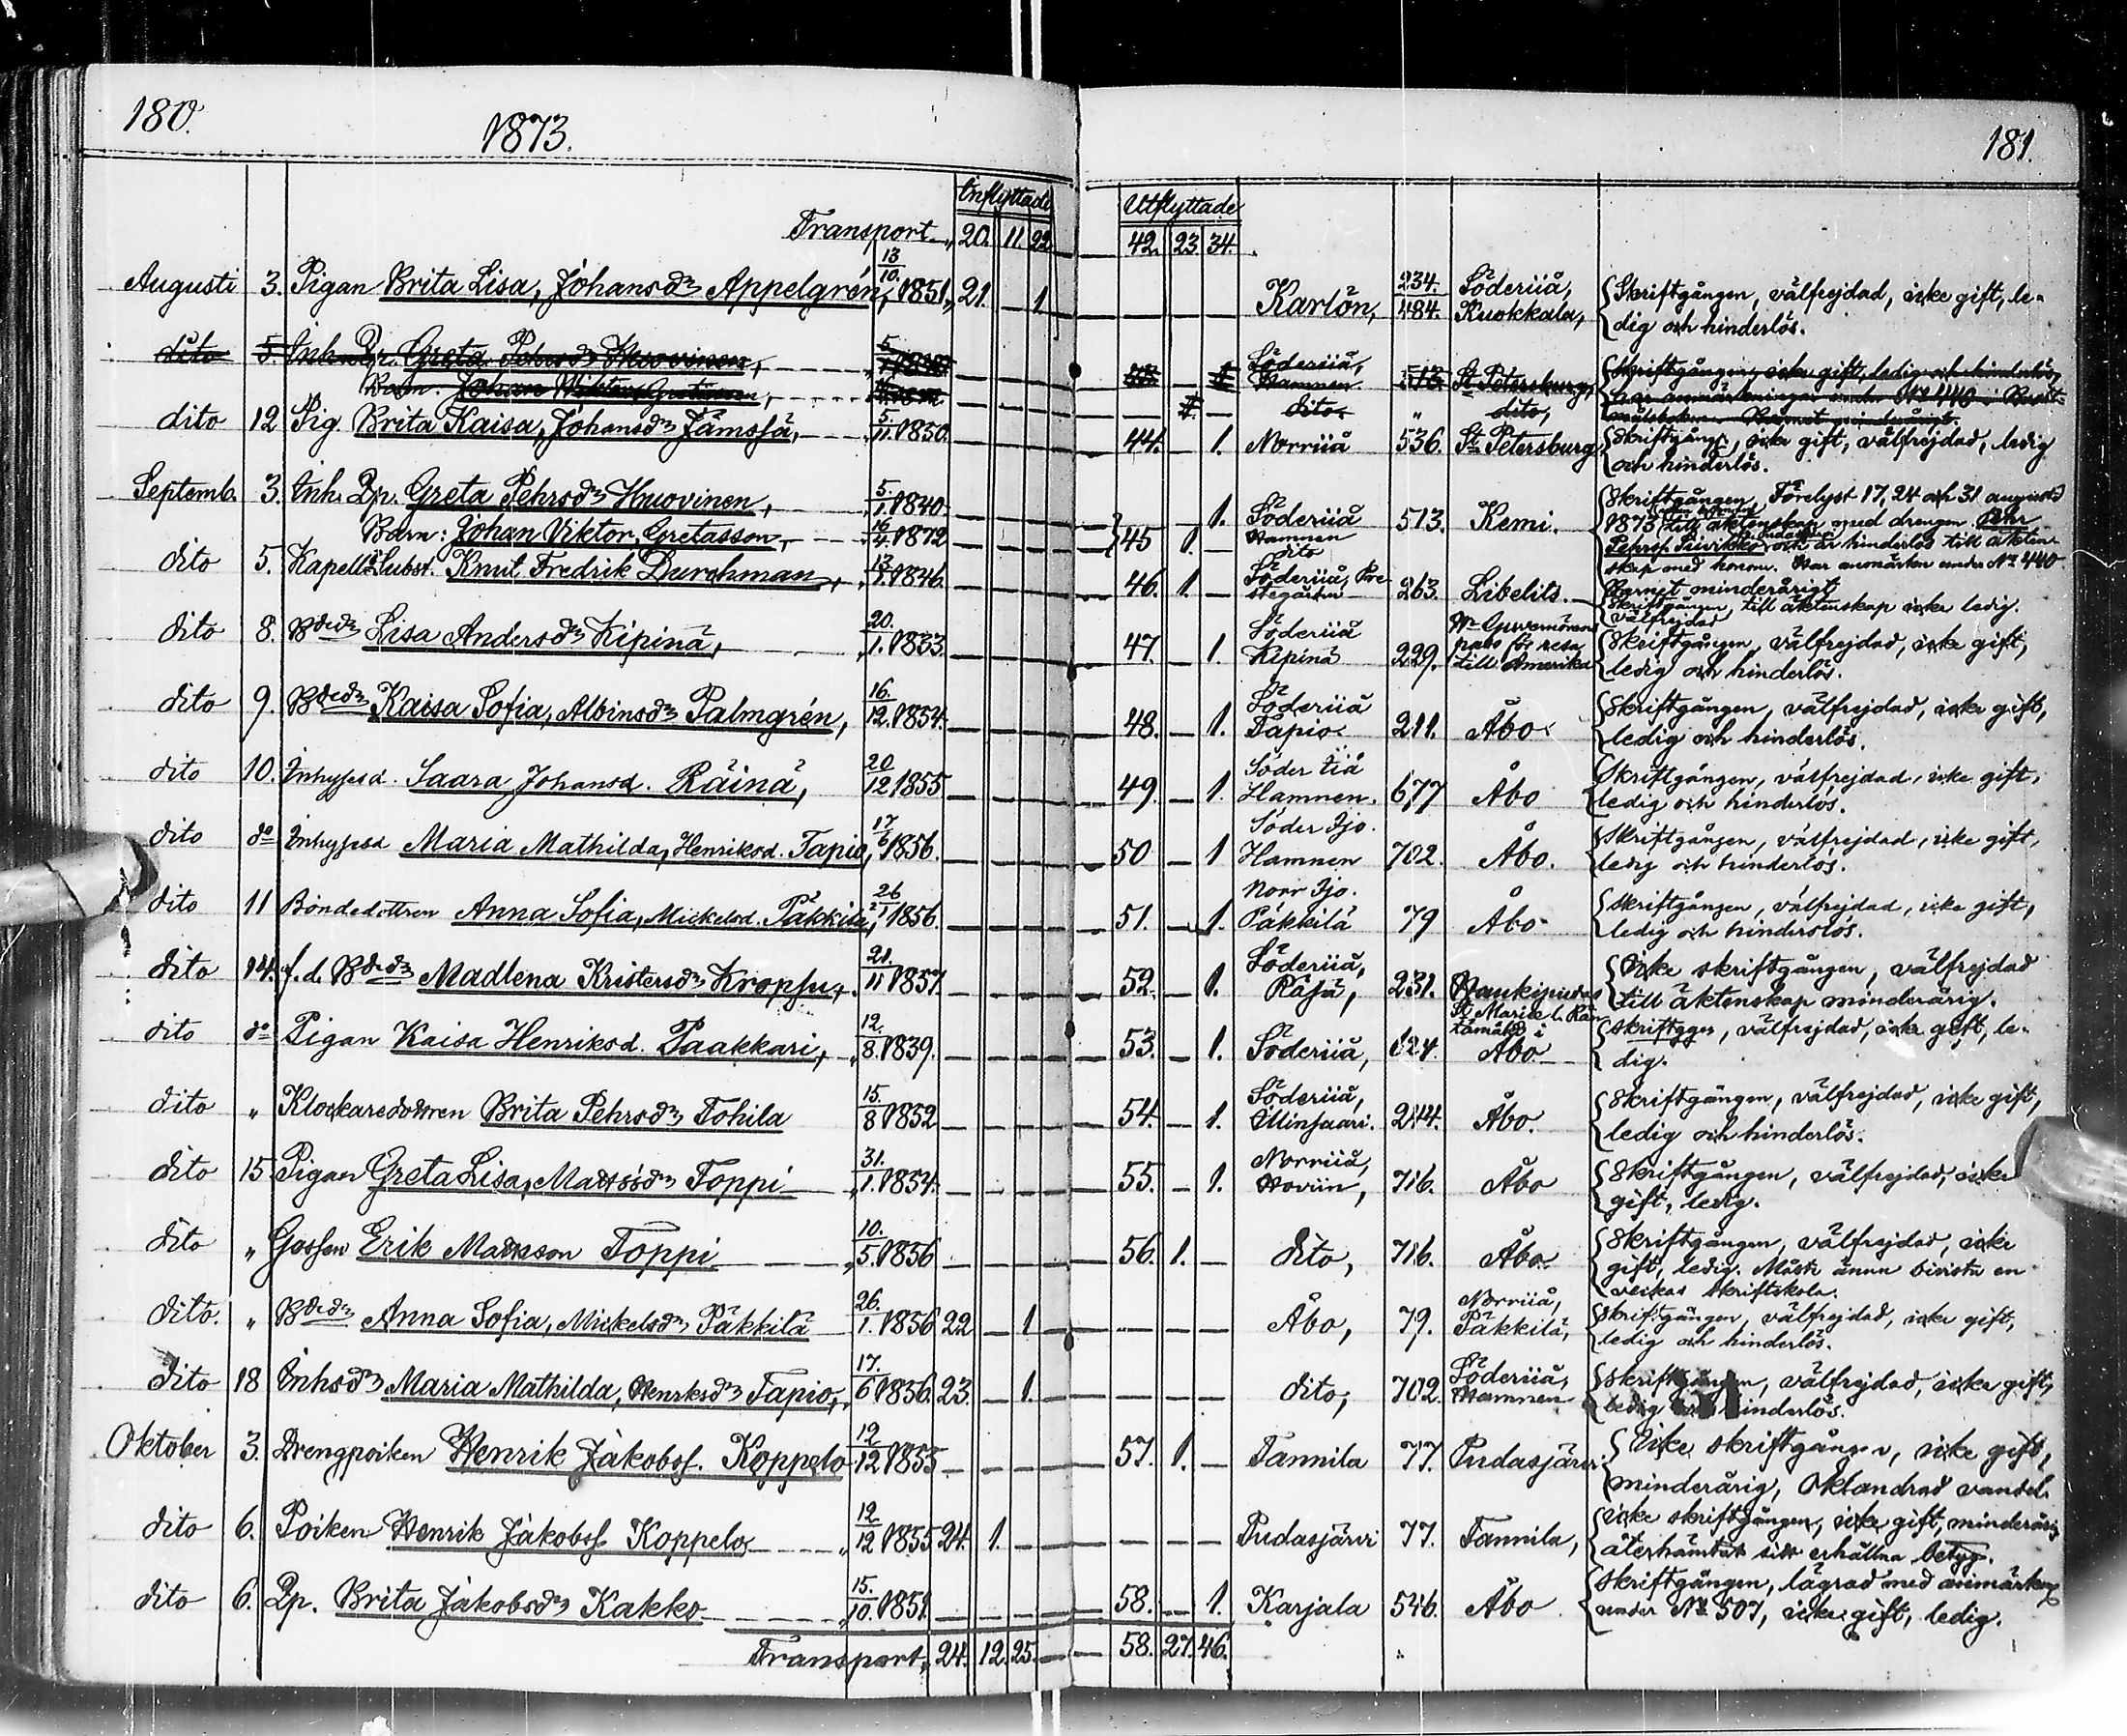 180.
1873.
181.
Inflyttade
Utflyttade
Transport 20. 11. 22. 42. 23. 34.
Augusti 3. Pigan Brita Lisa, Johansdr Appelgrén, 13/10. 1851. 21. 1 Karlön, 234./184. Söderiiå, Kuokkala, Skriftgången, välfrejdad, icke gift, le-
dig och hinderlös.
dito 5. Inh. Dr. Greta Pehrsdr Huovinen, Söderiiå, Hamnen St Petersburg, Skriftgången, icke gift, ledig och hinderlös,
Barn: Johan Viktor Gretasson, dito dito,
dito 12 Pig. Brita Kaisa, Johansdr Jämsä, 5./11. 1850. 44. 1. Norriiå 536. St. Petersburg Skriftgången, icke gift, välfrejdad, ledig
och hinderlös.
Septemb. 3. Inh. Dr. Greta Pehrsdr Huovinen, 5./1. 1840. 1. Söderiiå Hamnen 513. Kemi. Skriftgången, Förelyst 17, 24 och 31 augusti
1873 till äktenskap med drengen Pehr
Barn: Johan Viktor, Gretasson, 16/4. 1872 45 1. dito och är hinderlös till äkten-
skap med honom. Har anmärkn. under No 440
Barnet minderårigt
dito 5. Kapells Subst. Knut Fredrik Durchman, 13./1. 1846. 46. 1. Söderiiå, Pre-
stgården 263. Libelits. Skriftgången, till äktenskap icke ledig.
välfrejdad
dito 8. Bdedr Lisa Andersdr Kipinä, 20./1. 1833. 47. 1. Söderiiå Kipinä 229. Guvernörens
pass för resa
till Amerika Skriftgången, välfrejdad, icke gift,
ledig och hinderlös.
dito 9. Bdedr Kaisa Sofia, Albinsdr Palmgrén, 16./12. 1854. 48. 1. Söderiiå Tapio. 211. Åbo. Skriftgången, välfrejdad, icke gift,
ledig och hinderlös.
dito 10. Inhysesd. Saara Johansd. Räinä, 20/12 1855 49. 1. Söder iiå Hamnen. 677 Åbo Skriftgången, välfrejdad, icke gift,
ledig och hinderlös.
dito do Inhysesd Maria Mathilda, Henriksd. Tapio, 17/6 1856. 50 1 Söder Ijo. Hamnen 702. Åbo. Skriftgången, välfrejdad, icke gift,
ledig och hinderlös.
dito 11 Bondedottren Anna Sofia, Mickelsd. Päkkilä, 26/1 1856. 51. 1. Norr Ijo. Päkkilä 79 Åbo Skriftgången, välfrejdad, icke gift,
ledig och hinderslös.
dito 14. f.d. Bdedr Madlena Kristersdr Kropsu, 21./11 1857. 52. 1. Söderiiå, Räsä, 231. Haukipudas Icke skriftgången, välfrejdad
till äktenskap minderårig.
dito do Pigan Kaisa Henriksd. Paakkari, 12./8. 1839. 53. 1. Söderiiå, 624. St Marie l. Rän-
tämäki i
Åbo Skriftggn, välfrejdad, icke gift, le-
dig.
dito " Klockaredottren Brita Pehrsdr Tohila 15./8 1852 54. 1. Söderiiå, Illinsaari. 244. Åbo. Skriftgången, välfrejdad, icke gift,
ledig och hinderlös.
dito 15. Pigan Greta Lisa, Mattsdr Toppi 31./1. 1854. 55. 1. Norriiå, Hoviin, 716. Åbo Skriftgången, välfrejdad, icke
gift, ledig.
dito " Gossen Erik Mattsson Toppi 10./5. 1856 56. 1. dito, 716. Åbo. Skriftgången, välfrejdad, icke
gift, ledig. Måste ännu bivista en
veckas skriftskola.
dito. " Bdedr Anna Sofia, Mickelsdr Päkkilä 26./1. 1856 22 1 Åbo, 79. Norriiå, Päkkilä, Skriftgången, välfrejdad, icke gift,
ledig och hinderlös.
dito 18 Inhsdr Maria Mathilda, Henriksdr Tapio, 17./6 1856. 23. 1. dito, 702. Söderiiå, Hamnen Skriftgången, välfrejdad, icke gift,
ledig och hinderlös.
Oktober 3. Drengpoiken Henrik Jakobss. Koppelo 12/12 1855 57. 1. Tannila 77. Pudasjärvi Icke skriftgången, icke gift,
minderårig, Oklandrad vandel.
dito 6. Poiken Henrik Jakobss Koppelo 12/12 1855 24. 1. Pudasjärvi 77. Tannila, icke skriftgången, icke gift, minderårig
återhämtat sitt erhållna betyg.
dito 6. Qp. Brita Jakobsdr Kakko 15./10. 1851. 58. 1. Karjala 546. Åbo Skriftgången, lägrad med anmärkn
under No 507, icke gift, ledig.
Transport, 24. 12. 25. 58. 27. 46.